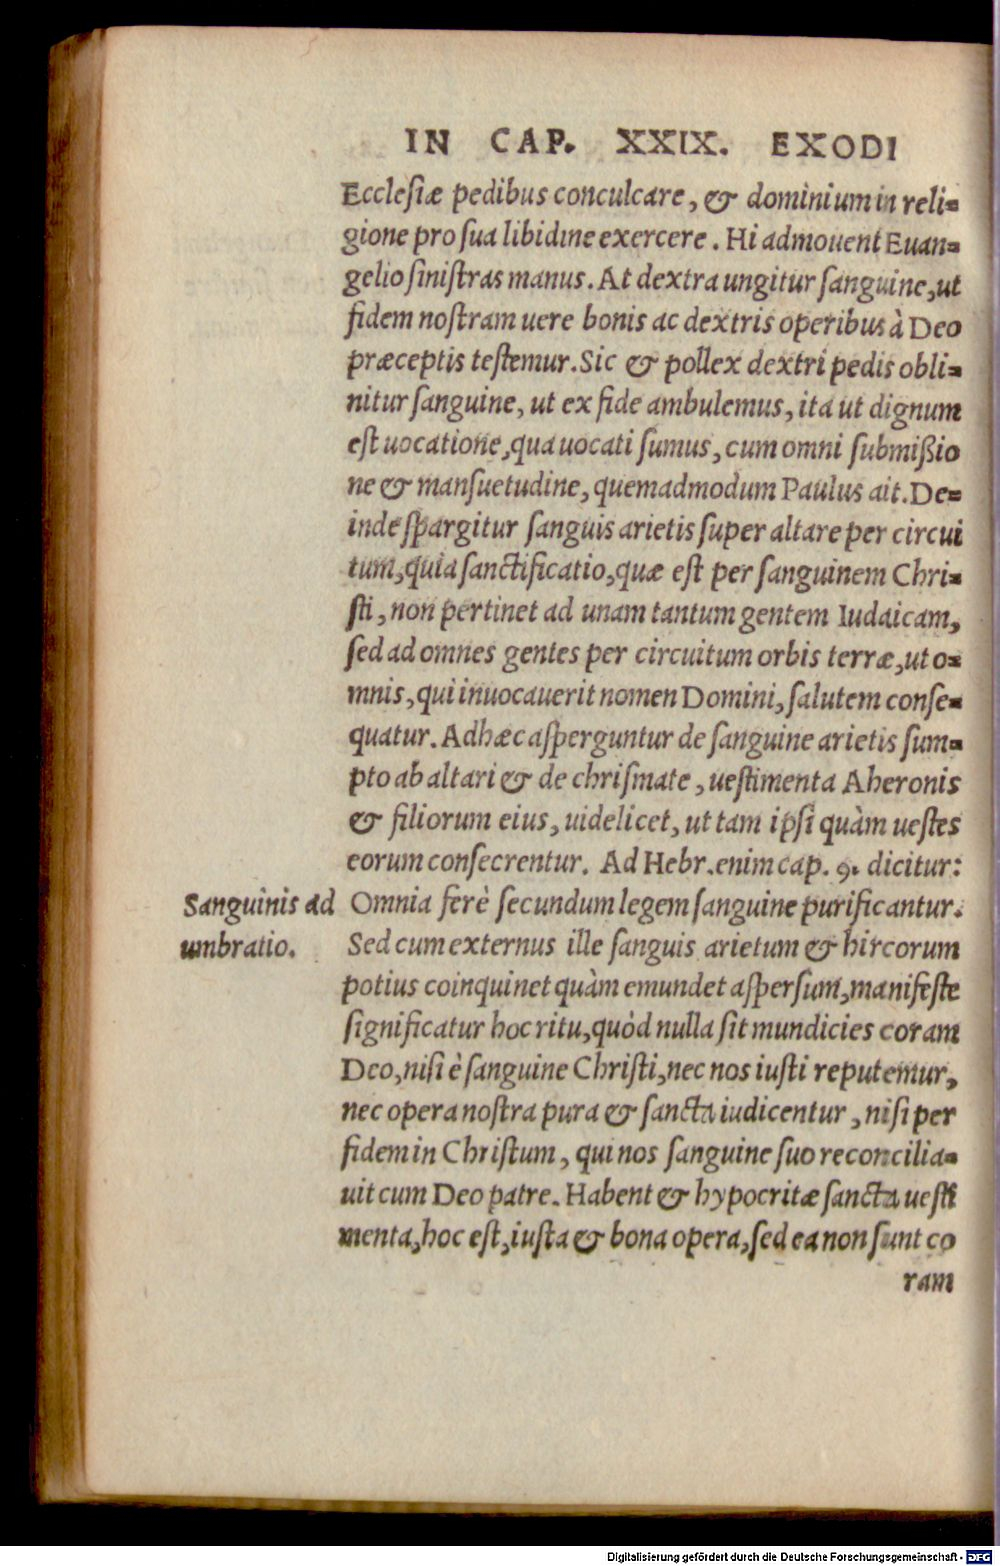 IN CAP. XXIX. EXODI
Ecclesiæ pedibus conculcare, & dominium in reli-
gione pro sua libidine exercere. Hi admouent Euan-
gelio sinistras manus. At dextra ungitur sanguine, ut
fidem nostram uere bonis ac dextris operibus à Deo
præceptis testemur. Sic & pollex dextri pedis obli-
nitur sanguine, ut ex fide ambulemus, ita ut dignum
est uocatione, qua uocati sumus, cum omni submißio
ne & mansuetudine, quemadmodum Paulus ait. De-
inde spargitur sanguis arietis super altare per circui
tum, quia sanctificatio, quæ est per sanguinem Chri-
sti, non pertinet ad unam tantum gentem Iudaicam,
sed ad omnes gentes per circuitum orbis terræ, ut o-
mnis, qui inuocauerit nomen Domini, salutem conse-
quatur. Adhæc asperguntur de sanguine arietis sum-
pto ab altari & de chrismate, uestimenta Aheronis
& filiorum eius, uidelicet, ut tam ipsi quàm uestes
eorum consecrentur. Ad Hebr. enim cap. 9. dicitur:
Sanguinis ad
umbratio.
Omnia ferè secundum legem sanguine purificantur.
Sed cum externus ille sanguis arietum & hircorum
potius coinquinet quàm emundet aspersum, manifeste
significatur hoc ritu, quòd nulla sit mundicies coram
Deo, nisi è sanguine Christi, nec nos iusti reputemur,
nec opera nostra pura & sancta iudicentur, nisi per
fidem in Christum, qui nos sanguine suo reconcilia-
uit cum Deo patre. Habent & hypocritæ sancta uesti
menta, hoc est, iusta & bona opera, sed ea non sunt co
ram
Digitalisierung gefördert durch die Deutsche Forschungsgemeinschaft - DFG